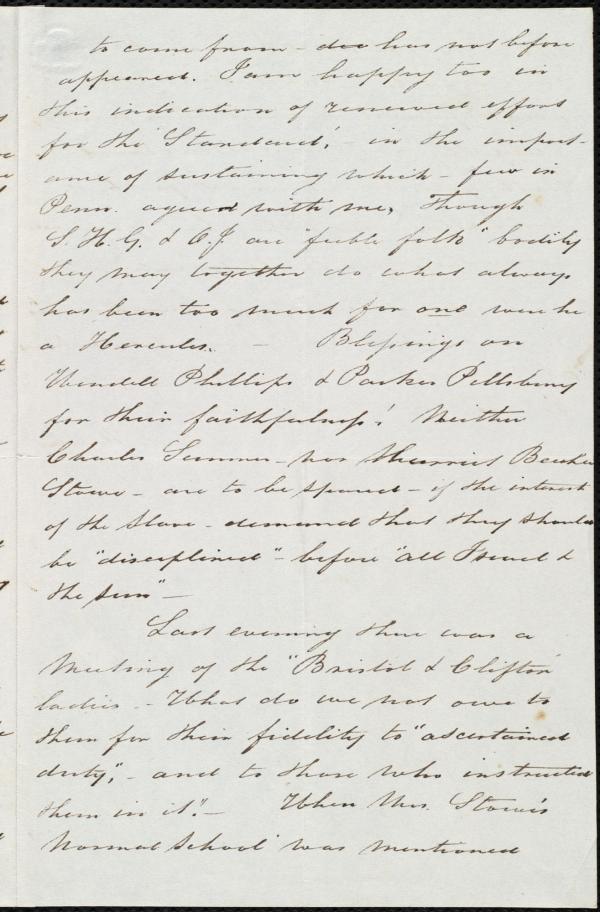 to come from - has not before
appeared. I am happy too in
this indication of renewed effort
for the 'Standard,' - in the import-
ance of sustaining which - few in
Penn. agreed with me, Though
S. H. G. & O. J. are "feeble folk" bodily
they may together do what always
has been too much for one were he
a Hercules. - Blessings on
Wendell Phillips & Parker Pillsbury
for their faithfulness! Neither
Charles Sumner - nor Harriet Beecher
Stowe - are to be spared - if the interest
of the Slave - demand that they should
be "disciplined" - before "all Israel &
the sun" -
Last evening there was a
Meeting of the "Bristol & Clifton
ladies - What do we not owe to
them for their fidelity to "ascertained
duty", - and to those who instructed
them in it". - When Mrs. Stowe's
'Normal School' was mentioned